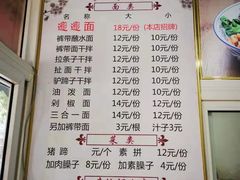 面类
名称 大 小
𰻝𰻝面 18元/份 (本店招牌)
裤带蘸水面 12元/份 10元/份
裤带面干拌 12元/份 10元/份
拉条子干拌 12元/份 10元/份
扯面干拌 12元/份 10元/份
驴蹄子干拌 12元/份 10元/份
油泼面 12元/份 10元/份
剁椒面 12元/份 10元/份
三合一面 12元/份 10元/份
另加裤带面 3元/根 汁子3元
菜类
猪蹄 元/个 素拼 12元/份
加肉臊子 8元/份 加素臊子 4元/份